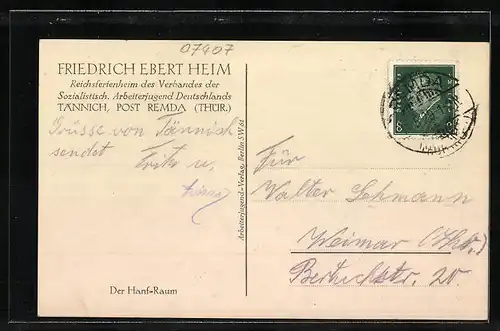 07407
FRIEDRICH EBERT HEIM
Reichsferienheim des Verbandes der
Sozialistisch. Arbeiterjugend Deutschlands
TÄNNICH, POST REMDA (THÜR.)
Grüsse von Tännich
sendet Fritz u.
Arbeiterjugend-Verlag, Berlin SW 61
8
Für
Walter Lehmann
Weimar (Thür.)
Bertuchstr. 20.
Der Hanf-Raum